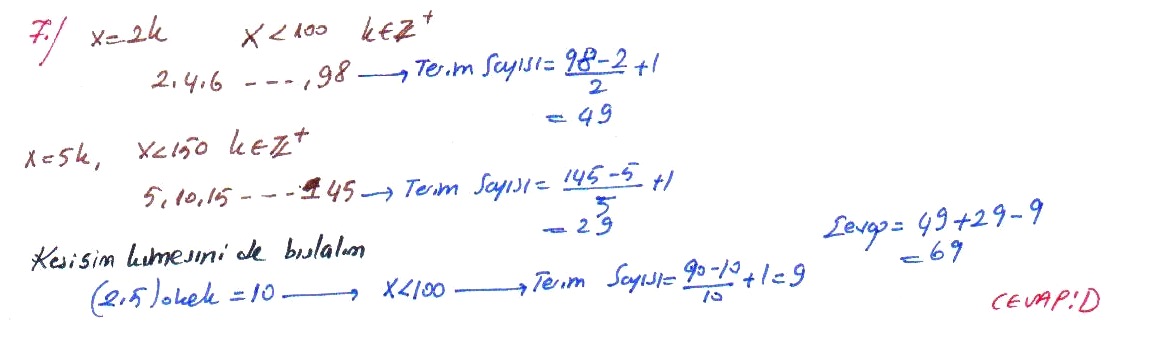 7.) x=2k x<100 k∈Z⁺
2,4,6 ---,98 → Terim Sayısı= (98-2)/2 +1
= 49
x=5k, x<150 k∈Z⁺
5,10,15 ---145 → Terim Sayısı= (145-5)/5 +1
= 29
Kesisim kumesini de bulalım
(2,5)okek =10 → x<100 → Terim Sayısı= (90-10)/10 +1=9
Cevap= 49+29-9
=69
CEVAP:D